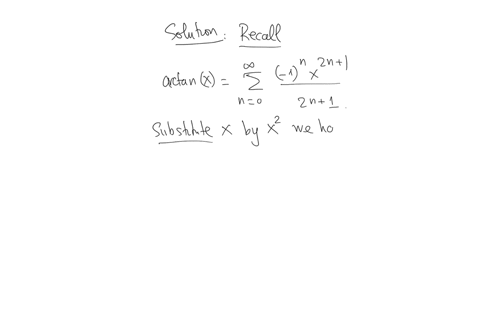 Solution: Recall
arctan(x) = ∞∑n=0 (-1)^n x^{2n+1} / 2n+1.
Substitute x by x² we ha